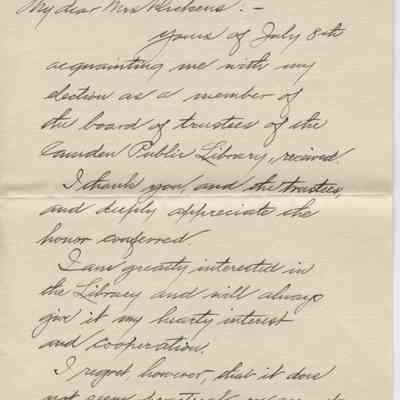 My dear Mrs Dickens: -
Yours of July 8th
acquainting me with my
election as a member of
the board of trustees of the
Camden Public Library, received.
I thank you, and the trustees,
and deeply appreciate the
honor conferred.
I am greatly interested in
the Library and will always
give it my hearty interest
and cooperation.
I regret, however, that it does
not seem